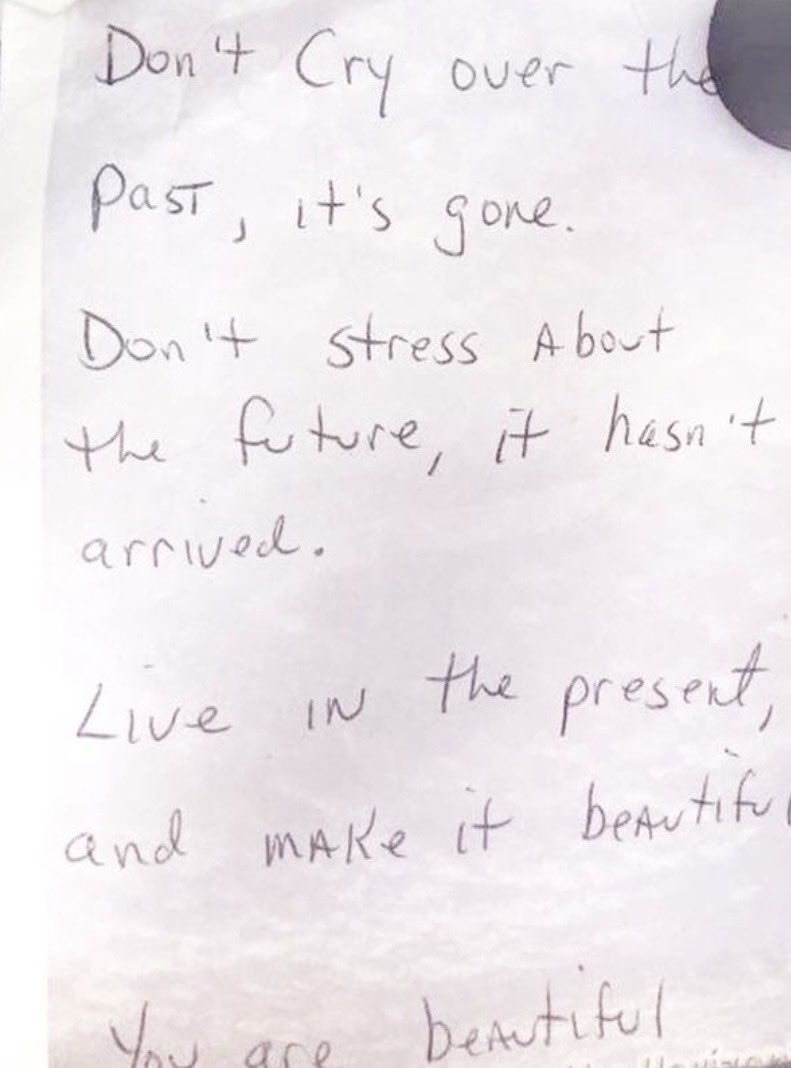 Don't Cry over the
Past, it's gone.
Don't stress About
the future, it hasn't
arrived.
Live in the present,
and make it beautiful
You are beautiful